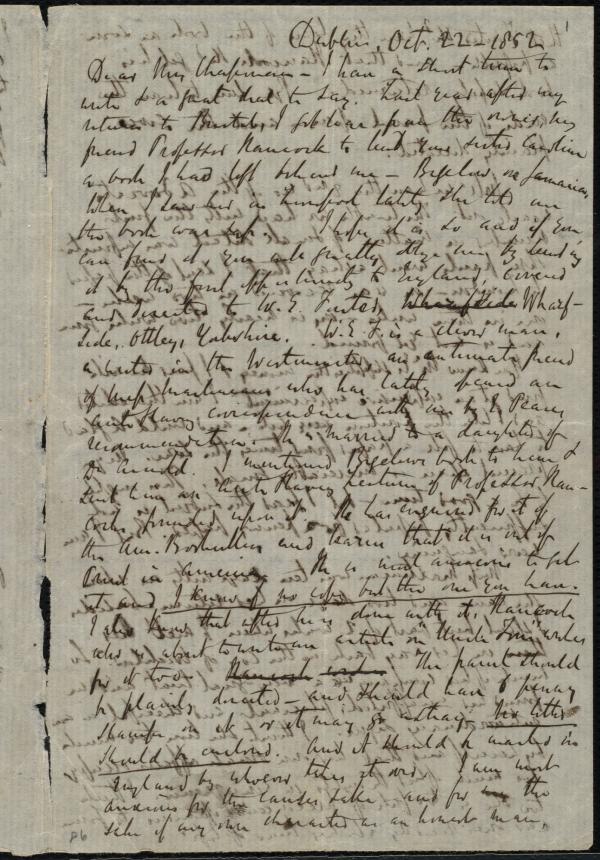 Dublin, Oct. 22 - 1852
Dear Mrs Chapman - I have a short time to
write & a great deal to say. Last year after my
return to Bristol, I got leave from the owner, my
friend Professor Hancock to lend your sister Caroline
a book I had left behind me - Bigelow on Jamaica.
When I saw her in Liverpool lately she told me
the book was safe. I hope it is so and if you
can find it, you will greatly oblige me by sending
it by the first opportunity to England, covered
and directed to W. E. Forster, Wharfside Wharf-
side, Ottley, Yorkshire. W. E. F. is a clever man,
a writer in the Westminster, an intimate friend
of Miss Martineau who has lately opened an
anti slavery correspondence with me by J Pease's
recommendation. He is married to a daughter of
Dr Arnold. I mentioned Bigelow's book to him &
sent him an Anti Slavery Lecture of Professor Han-
cock's founded upon it. He has enquired for it of
the Am. Booksellers and learns that it is out of
print in America. He is most anxious to get
it and I know of no copy but the one you have.
I also know that after he is done with it, Hancock
who is about to write an article on "Uncle Tom" wishes
for it too. The parcel should
be plainly directed - and should have 6 penny
stamps on it or it may go astray. No letter
should be enclosed. And it should be mailed in
England by whoever takes it over. I am most
anxious for the cause's sake, and for the
sake of my own character as an honest man,